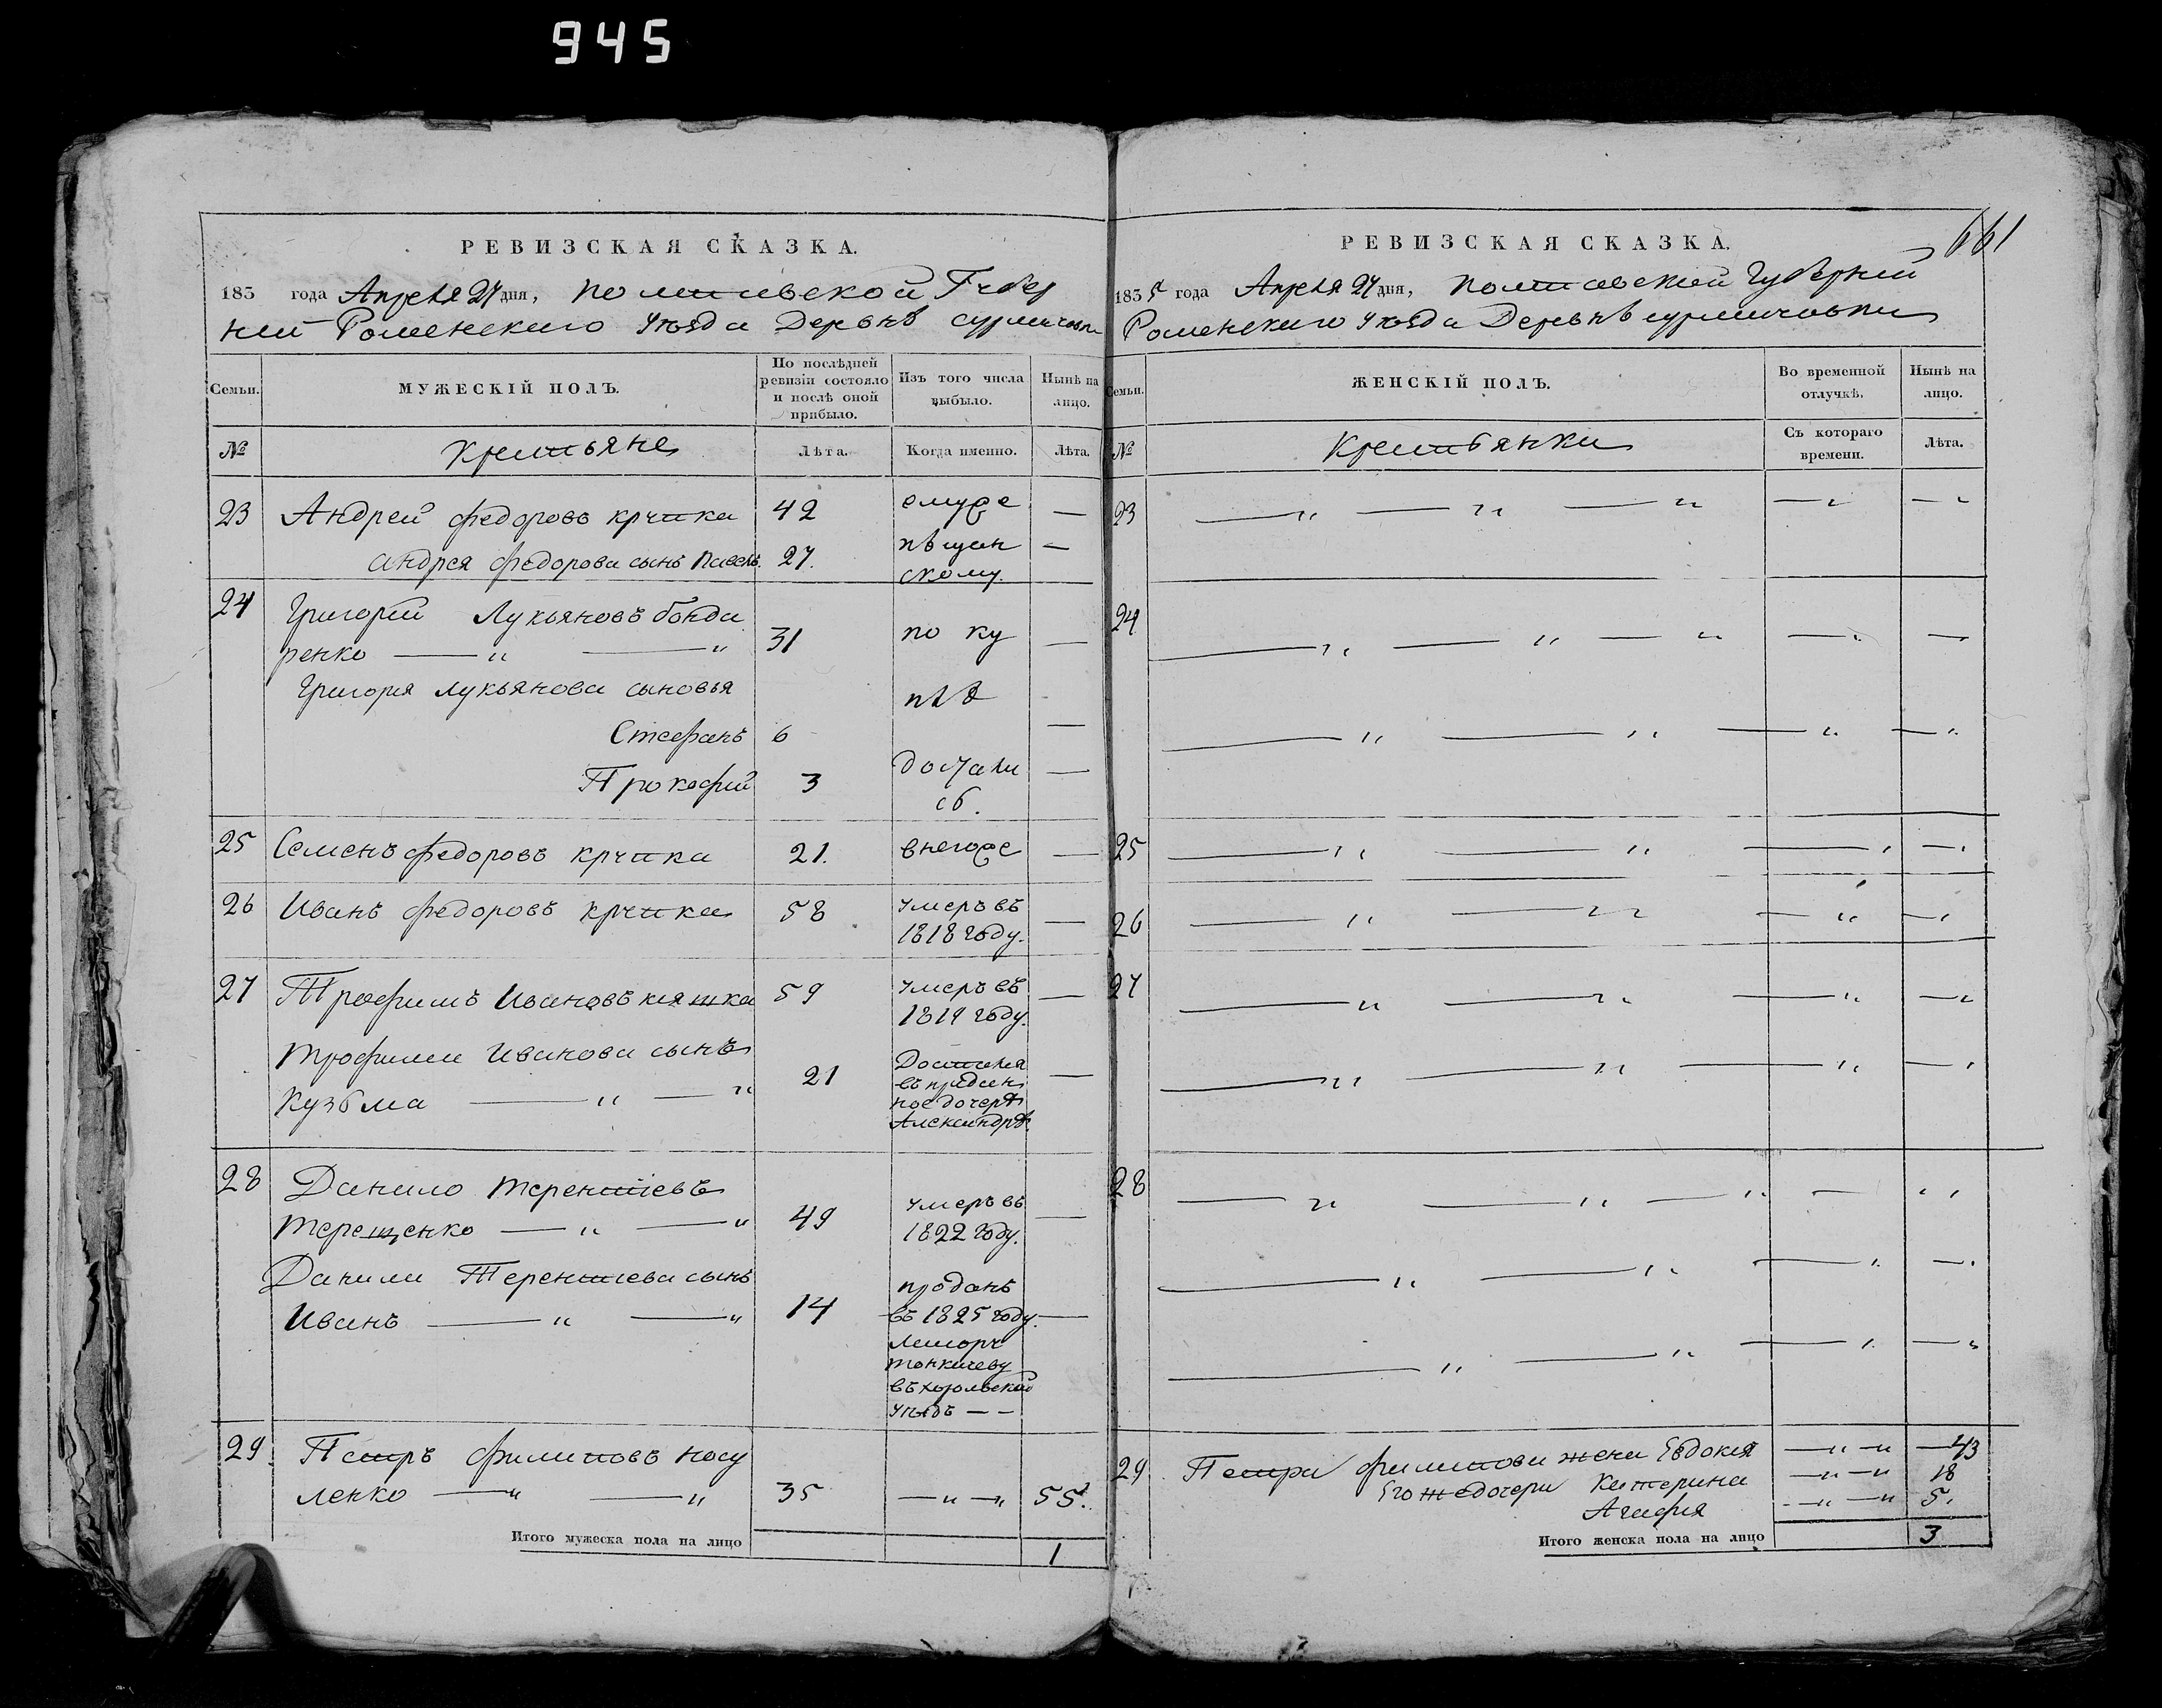 945
РЕВИЗСКАЯ СКАЗКА.
183 года Апреля 27 дня, полтавской Губер
ній Роменского Уѣзда Деревнѣ сурмачовки
Семьи.
МУЖЕСКІЙ ПОЛЪ.
По послѣдней ревизіи состояло и послѣ оной прибыло.
Изъ того числа выбыло.
Нынѣ на лицо.
№
Крестьяне
Лѣта.
Когда именно.
Лѣта.
23 Андрей федоровъ кручка 42 ему же —
андрея федорова сынъ павелъ. 27. пѣщан —
скому.
24 Григорій Лукьяновъ бонда
ренко — „ — „ 31 по ку —
Григорія лукьянова сыновья
Стефанъ 6 —
Прокофій 3 достали —
сь.
25 Семенъ федоровъ кручка 21. внегоже —
26 Иванъ федоровъ кручка 58 умеръ въ —
1818 году.
27 Трофимъ Ивановъ кияшка 59 умеръ въ —
1819 году.
трофима Иванова сынъ
Кузьма — „ — „ 21 Досталася —
въ приданное дочерѣ
Александрѣ.
28 Данило терентіевъ
терещенко — „ — „ 49 умеръ въ —
1822 году.
Данила Терентіева сынъ
Иванъ — „ — „ 14 проданъ
въ 1825 году. —
въ хорольской
уѣздъ — —
29. Петръ филиповъ носу
ленко — „ — „ 35 — „ — „ 55.
Итого мужеска пола на лицо 1
661
РЕВИЗСКАЯ СКАЗКА.
1835 года Апреля 27 дня, полтавской Губерній
Роменского Уѣзда Деревнѣ сурмачовки
Семьи.
ЖЕНСКІЙ ПОЛЪ.
Во временной отлучкѣ.
Нынѣ на лицо.
№
Крестьянки
Съ котораго времени.
Лѣта.
23 — „ — „ — „ — „ — „
24 — „ — „ — „ — „ —
— „ — „ — „ — „
25 — „ — „ — „ — „
26 — „ — „ — „ — „
27 — „ — „ — „ — „
— „ — „ — „ — „
28 — „ — „ — „ — „
— „ — „ — „ — „
— „ — „ — „ — „
29. Петра филипова жена Евдокія — „ — „ — 43
Его же дочери Катерина — „ — „ 18
Агафия — „ — „ 5.
Итого женска пола на лицо 3